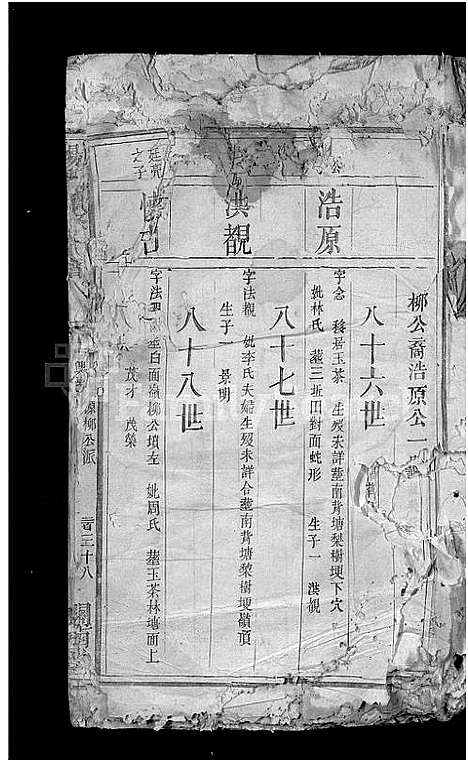 柳公裔浩原公一
八十六世
公
浩原
字念 移居玉茶 生殁未詳葬南背塘梨樹埂下穴
妣林氏 葬三坵田對面蛇形 生子一 洪観
八十七世
洪観
字法觀 妣李氏夫婦生殁未詳合葬南背塘梨樹埂嶺頂
生子一 景明
八十八世
廷亮之子
懷
字法 葬白面嶺柳公墳左 妣周氏 葬玉茶林塘面上
茂才 茂榮
源柳公派
三十八